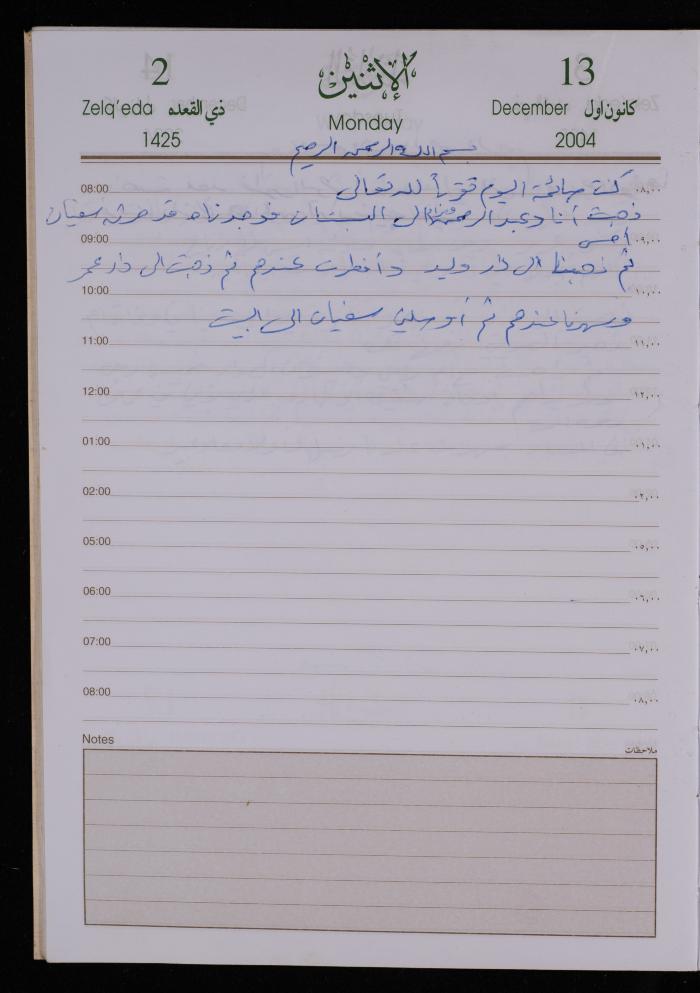 2 الإثنين 13
Zelq'eda ذي القعده Monday December كانون اول
1425 2004
بسم الله الرحمن الرحيم
08:00 كنت صائمة اليوم تقرباً لله تعالى ٠٨,٠٠
ذهبت أنا وعبد الرحمن الى البستان فوجدناه قد حرثه سفيان
09:00 أمس ٠٩,٠٠
ثم ذهبنا الى دار وليد وأفطرت عندهم ثم ذهبت الى دار عمر
10:00 ١٠,٠٠
وسهرنا عندهم ثم أوصلني سفيان الى البيت
11:00 ١١,٠٠
12:00 ١٢,٠٠
01:00 ٠١,٠٠
02:00 ٠٢,٠٠
05:00 ٠٥,٠٠
06:00 ٠٦,٠٠
07:00 ٠٧,٠٠
08:00 ٠٨,٠٠
Notes ملاحظات